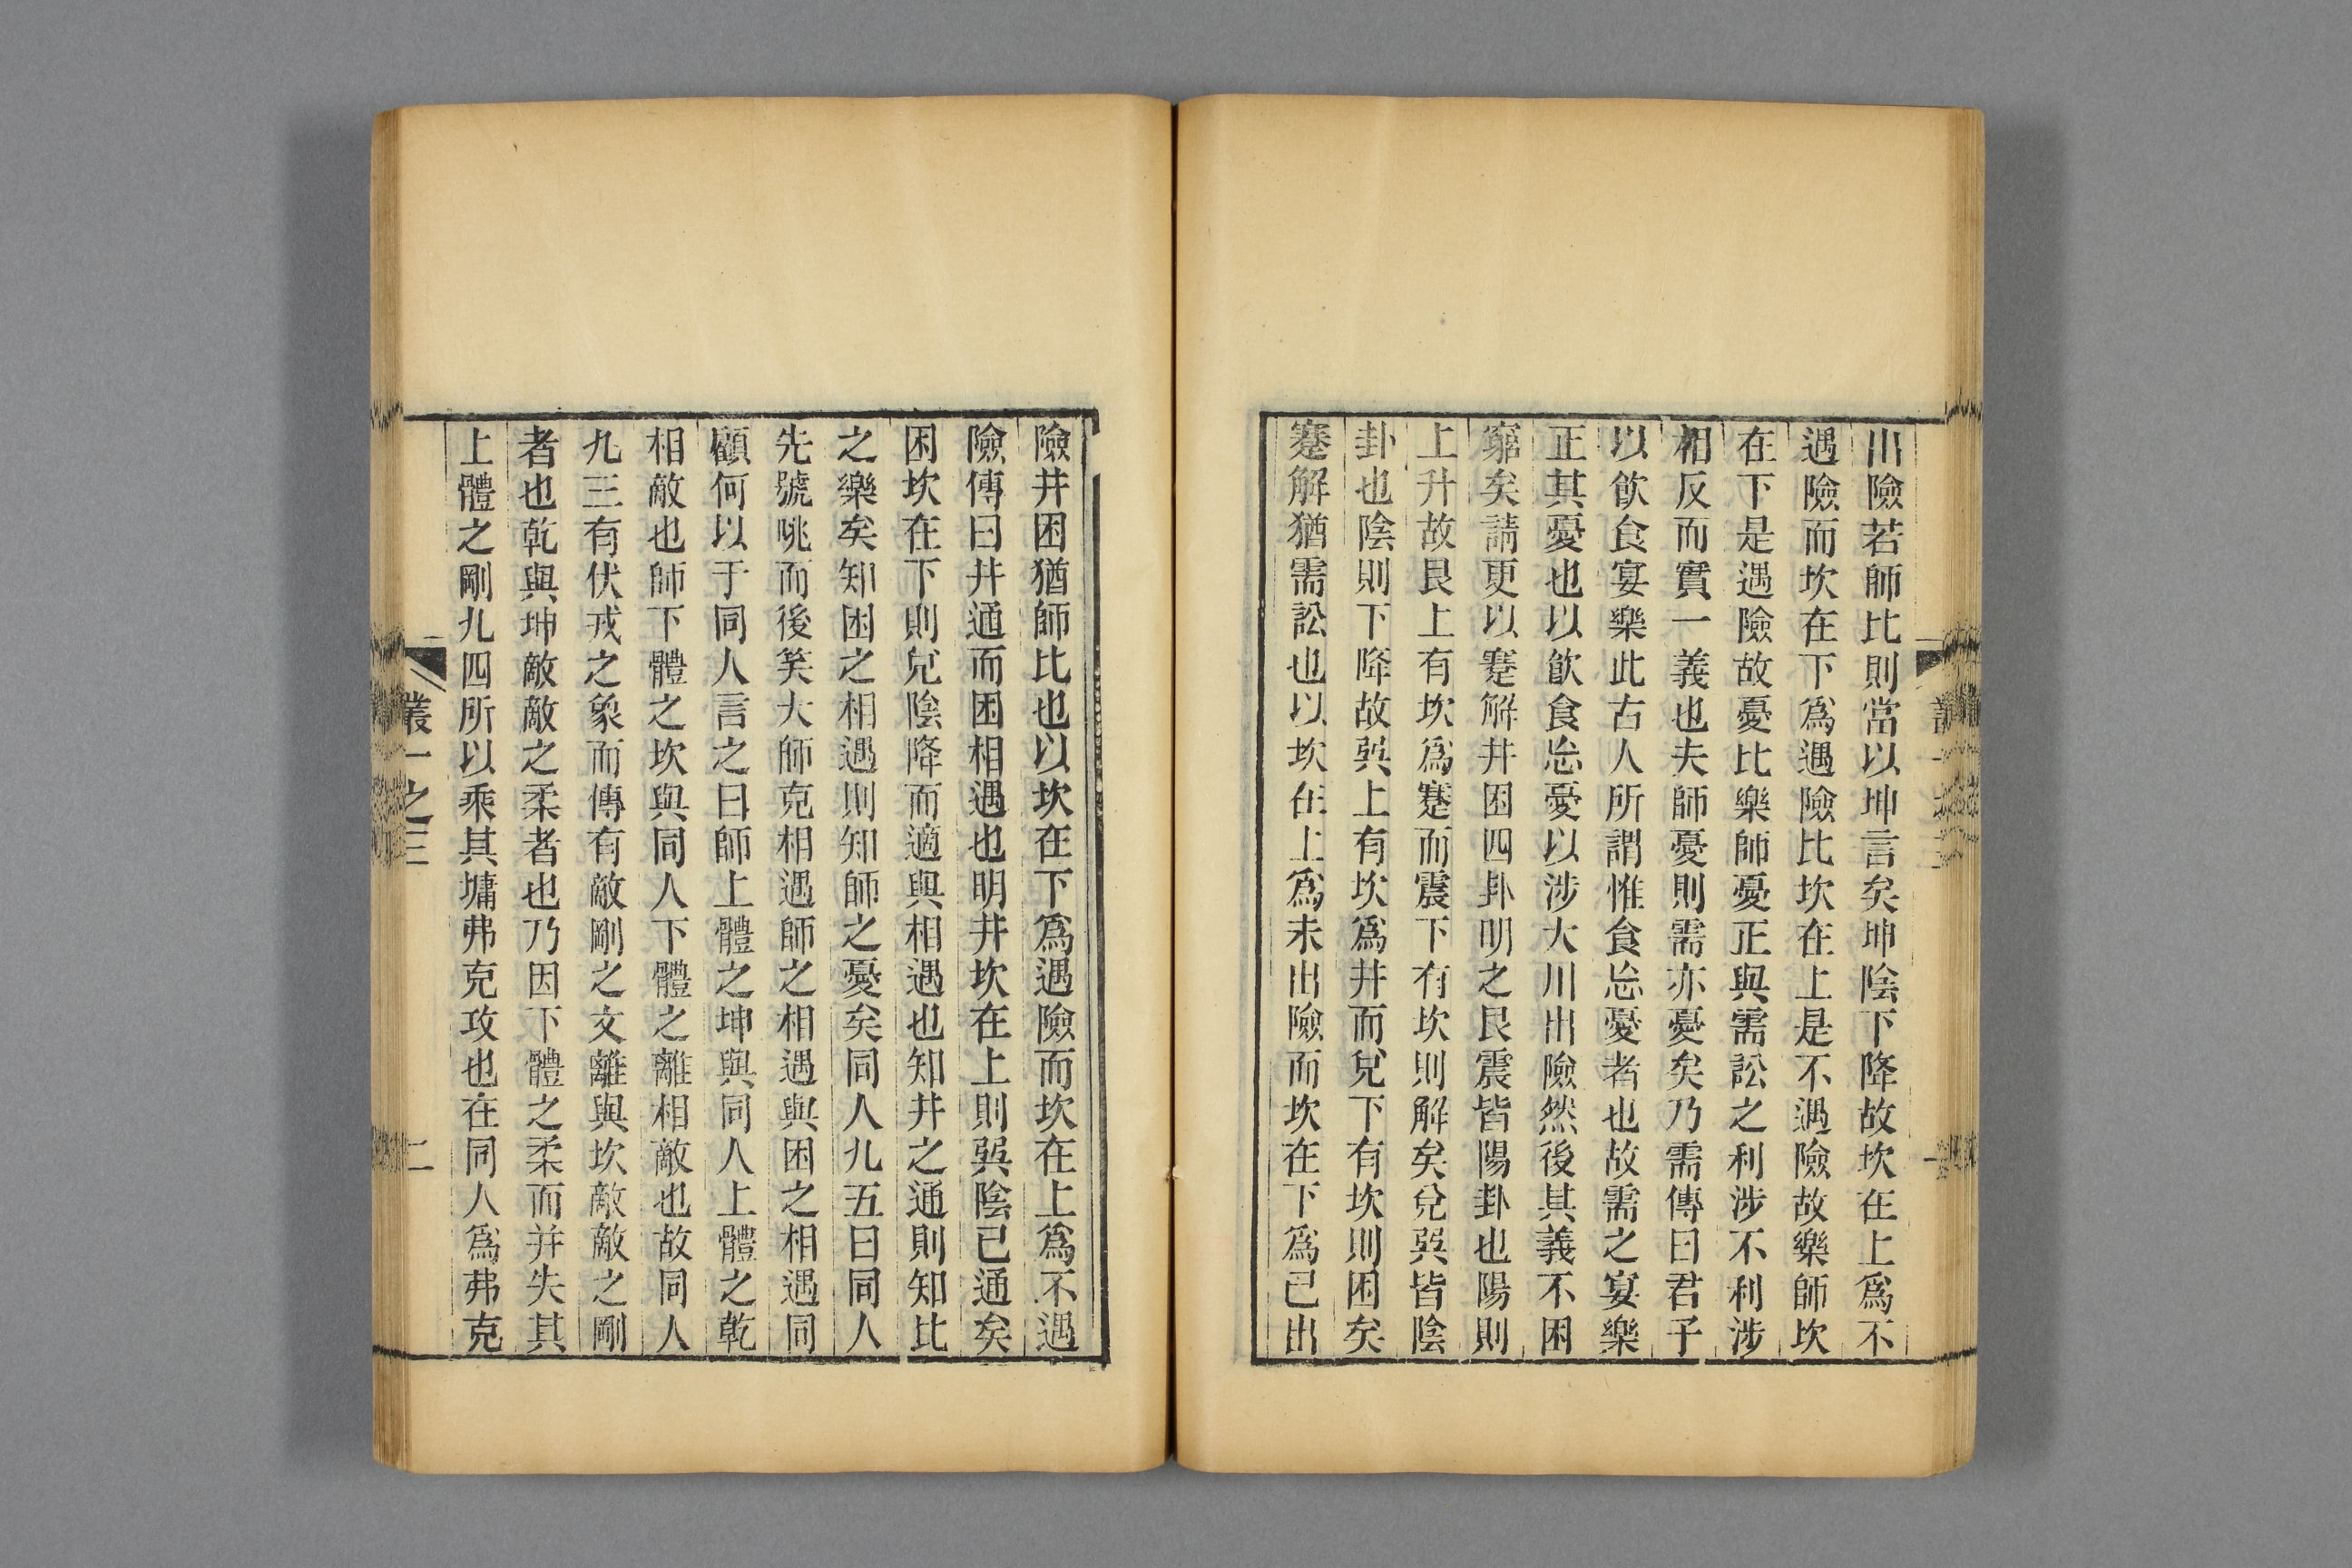 出險若師比則當以坤言矣坤陰下降故坎在上爲不
遇險而坎在下爲遇險比坎在上是不遇險故樂師坎
在下是遇險故憂比樂師憂正與需訟之利涉不利涉
相反而實一義也夫師憂則需亦憂矣乃需傳曰君子
以飮食宴樂此古人所謂惟食㤀憂者也故需之宴樂
正其憂也以飮食㤀憂以涉大川出險然後其義不困
窮矣請更以蹇解井困四卦明之艮震皆陽卦也陽則
上升故艮上有坎爲蹇而震下有坎則解矣兌巽皆陰
卦也陰則下降故巽上有坎爲井而兌下有坎則困矣
蹇解猶需訟也以坎在上爲未出險而坎在下爲己出
險井困猶師比也以坎在下爲遇險而坎在上爲不遇
險傳曰井通而困相遇也明井坎在上則巽陰己通矣
困坎在下則兌陰降而適與相遇也知井之通則知比
之樂矣知困之相遇則知師之憂矣同人九五曰同人
先號咷而後笑大師克相遇師之相遇與困之相遇同
顧何以于同人言之曰師上體之坤與同人上體之乾
相敵也師下體之坎與同人下體之離相敵也故同人
九三有伏戎之象而傳有敵剛之文離與坎敵敵之剛
者也乾與坤敵敵之柔者也乃因下體之柔而并失其
上體之剛九四所以乘其墉弗克攻也在同人爲弗克
叢一之三
二